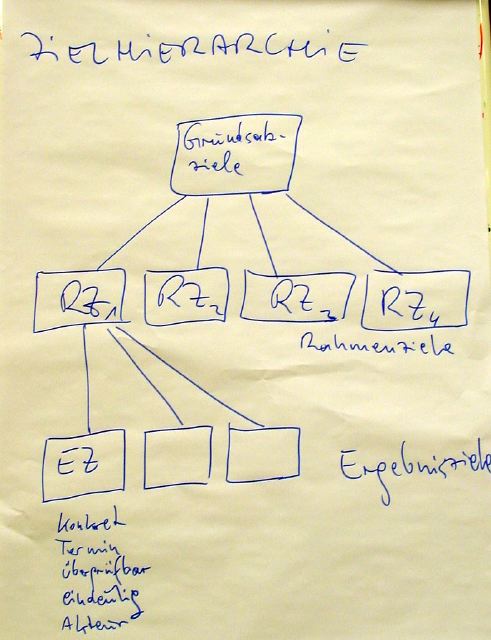 ZIELHIERARCHIE
Grundsatz-
ziele
RZ1 RZ2 RZ3 RZ4
Rahmenziele
EZ
Ergebnisziele
Konkret
Termin
überprüfbar
eindeutig
Akteur